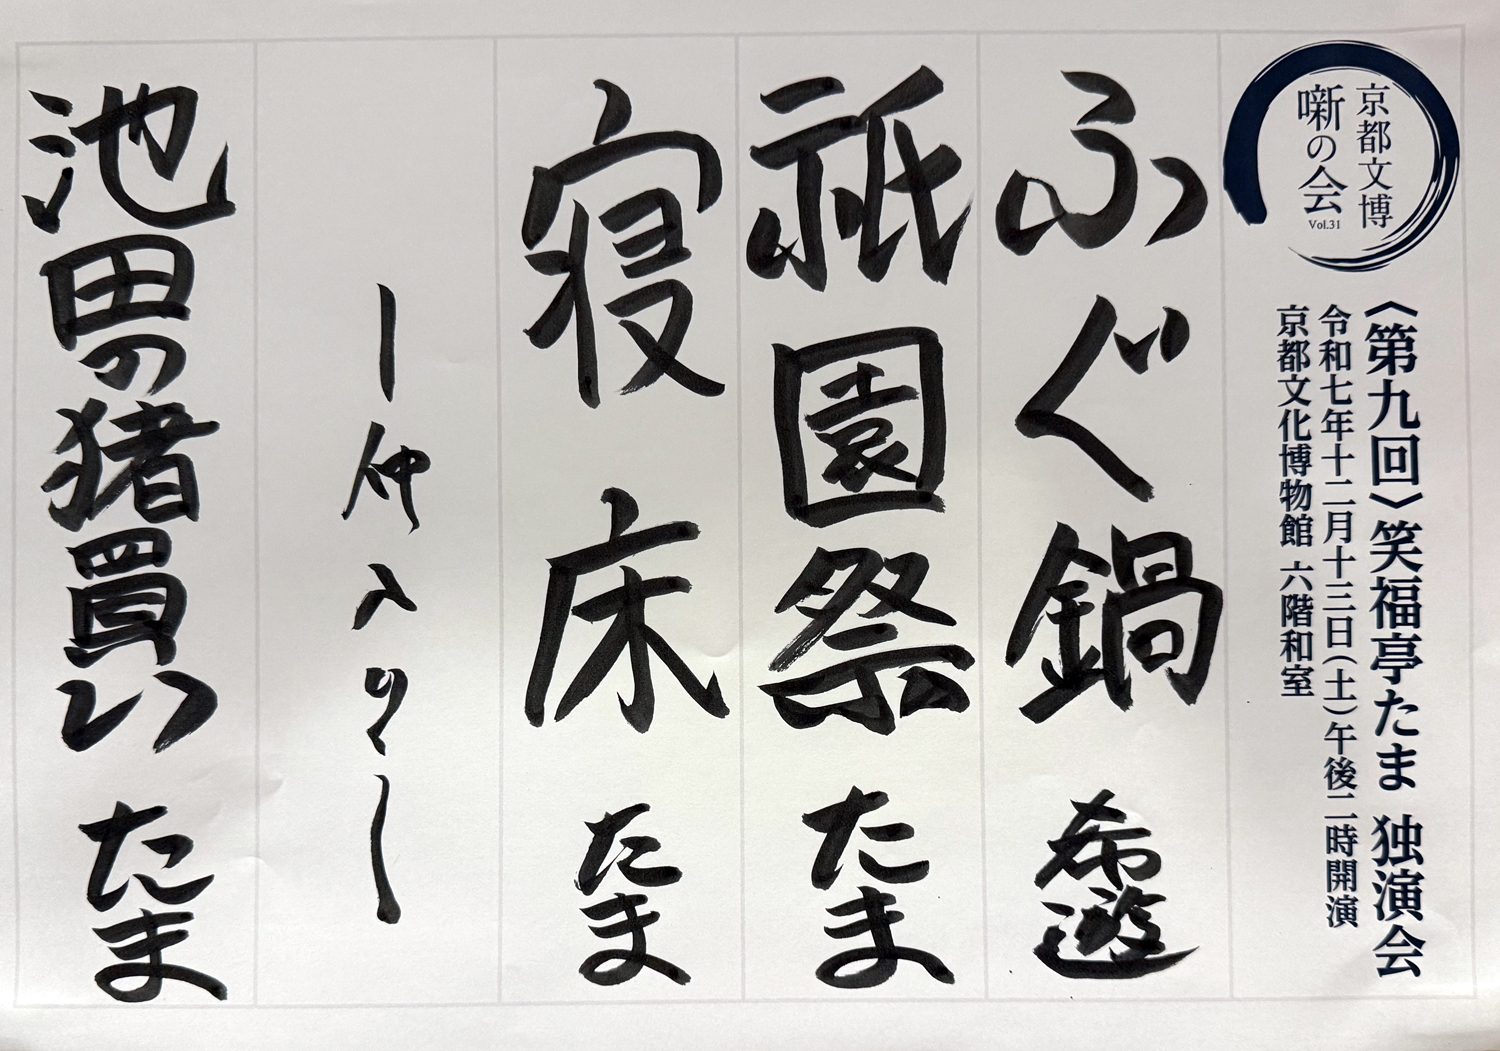 京都文博
噺の会
Vol.31
〈第九回〉笑福亭たま 独演会
令和七年十二月十三日(土)午後二時開演
京都文化博物館 六階和室
ふぐ鍋 希遊
祇園祭 たま
寝床 たま
ー仲入りー
池田の猪買い たま